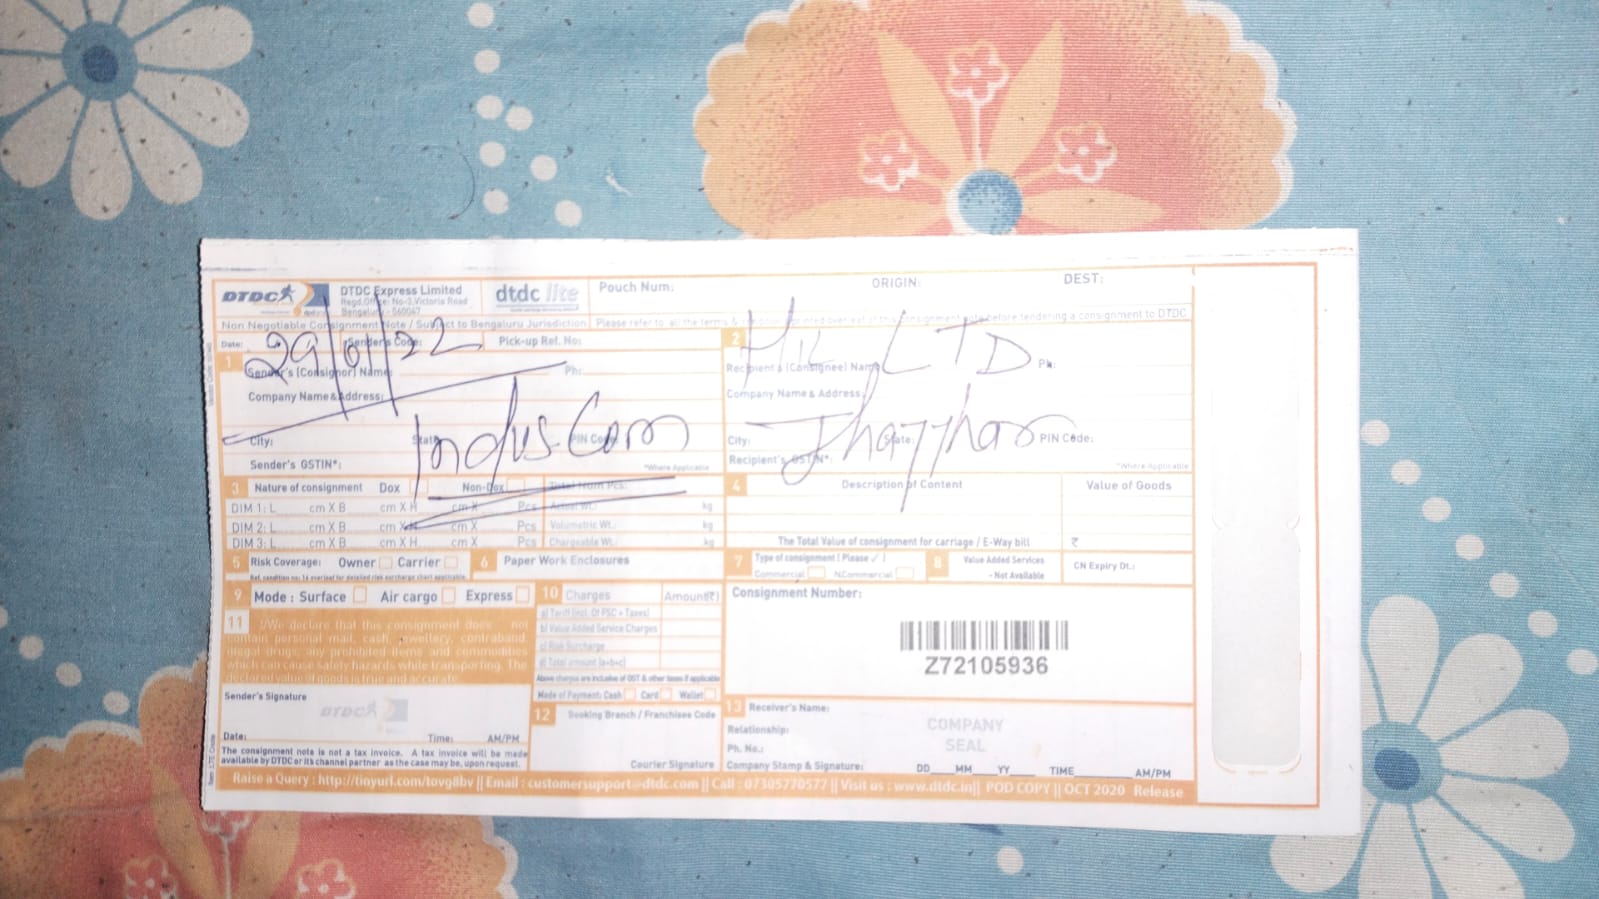 DTDC
DTDC Express Limited
Regd.Office: No-3,Victoria Road
Bengaluru - 560047
dtdc lite
Pouch Num:
ORIGIN:
DEST:
Non Negotiable Consignment Note / Subject to Bengaluru Jurisdiction
Please refer to all the terms & condition printed overleaf of this consignment note before tendering a consignment to DTDC
Date: 29/01/22
Sender's Code:
Pick-up Ref. No:
1 Sender's (Consignor) Name:
Ph:
Company Name & Address:
Indus Com
City:
State:
PIN Code:
Sender's GSTIN*:
*Where Applicable
2 LTD
Recipient's (Consignee) Name:
Ph:
Company Name & Address:
Jhajjhar
City:
State:
PIN Code:
Recipient's GSTIN*:
*Where Applicable
3 Nature of consignment Dox Non-Dox Total Num Pcs:
DIM 1: L cm X B cm X H cm X Pcs Actual Wt.: kg
DIM 2: L cm X B cm X H cm X Pcs Volumetric Wt.: kg
DIM 3: L cm X B cm X H cm X Pcs Chargeable Wt.: kg
4 Description of Content
Value of Goods
The Total Value of consignment for carriage / E-Way bill ₹
5 Risk Coverage: Owner Carrier
Ref. condition no: 14 overleaf for detailed risk surcharge chart applicable.
6 Paper Work Enclosures
7 Type of consignment ( Please ✓ )
Commercial N.Commercial
8 Value Added Services
- Not Available
CN Expiry Dt.:
9 Mode : Surface Air cargo Express
10 Charges Amount(₹)
a) Tariff (incl. Of FSC + Taxes)
b) Value Added Service Charges
c) Risk Surcharge
d) Total amount (a+b+c)
Above charges are inclusive of GST & other taxes if applicable
Mode of Payment: Cash Card Wallet
11 I/We declare that this consignment does not
contain personal mail, cash, jewellery, contraband,
illegal drugs, any prohibited items and commodities
which can cause safety hazards while transporting. The
declared value of goods is true and accurate.
Sender's Signature
DTDC
Date: Time: AM/PM
The consignment note is not a tax invoice. A tax invoice will be made
available by DTDC or its channel partner as the case may be, upon request.
12 Booking Branch / Franchisee Code
Courier Signature
Consignment Number:
Z72105936
13 Receiver's Name:
Relationship:
Ph. No.:
COMPANY
SEAL
Company Stamp & Signature:
DD MM YY TIME AM/PM
Raise a Query : http://tinyurl.com/tovg8bv || Email : customersupport@dtdc.com || Call : 07305770577 || Visit us : www.dtdc.in|| POD COPY || OCT 2020 Release